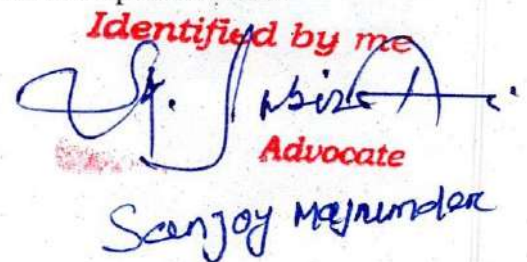 Identified by me
Advocate
Sanjoy Majumder